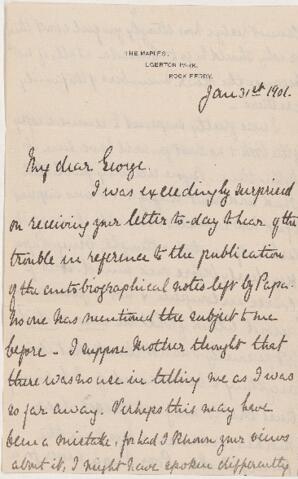 THE MAPLES,
EGERTON PARK,
ROCK FERRY.
Jan 31st 1901.
My dear George.
I was exceedingly surprised
on receiving your letter to-day to hear of the
trouble in reference to the publication
of the autobiographical notes left by Papa.
No one has mentioned the subject to me
before - I suppose Mother thought that
there was no use in telling me as I was
so far away. Perhaps this may have
been a mistake, for had I known your views
about it, I might have spoken differently